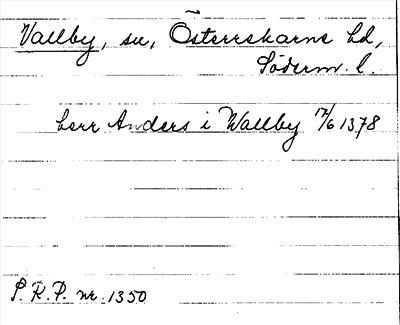 Vallby, sn, Österrekarne hd,
Söderm. l.
herr Anders i Wallby 7/6 1378
S. R. P. nr. 1350